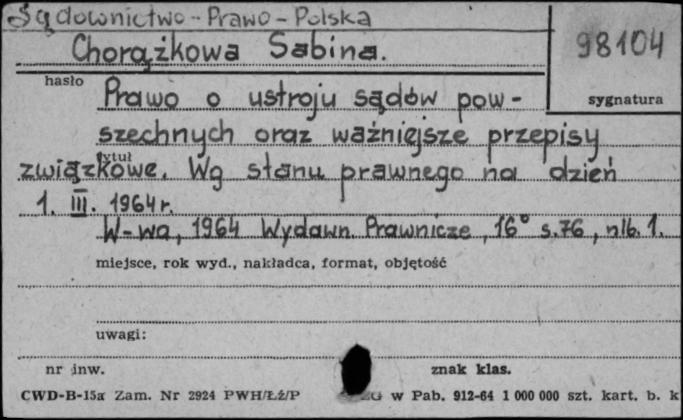 Sądownictwo - Prawo - Polska
Chorążkowa Sabina.
98104
hasło
sygnatura
Prawo o ustroju sądów pow-
szechnych oraz ważniejsze przepisy
tytuł
związkowe. Wg stanu prawnego na dzień
1. III. 1964 r.
W-wa, 1964 Wydawn. Prawnicze, 16° s. 76, nlb. 1.
miejsce, rok wyd., nakładca, format, objętość
uwagi:
nr inw.
znak klas.
CWD-B-15a Zam. Nr 2924 PWH/Łź/P w Pab. 912-64 1 000 000 szt. kart. b. k